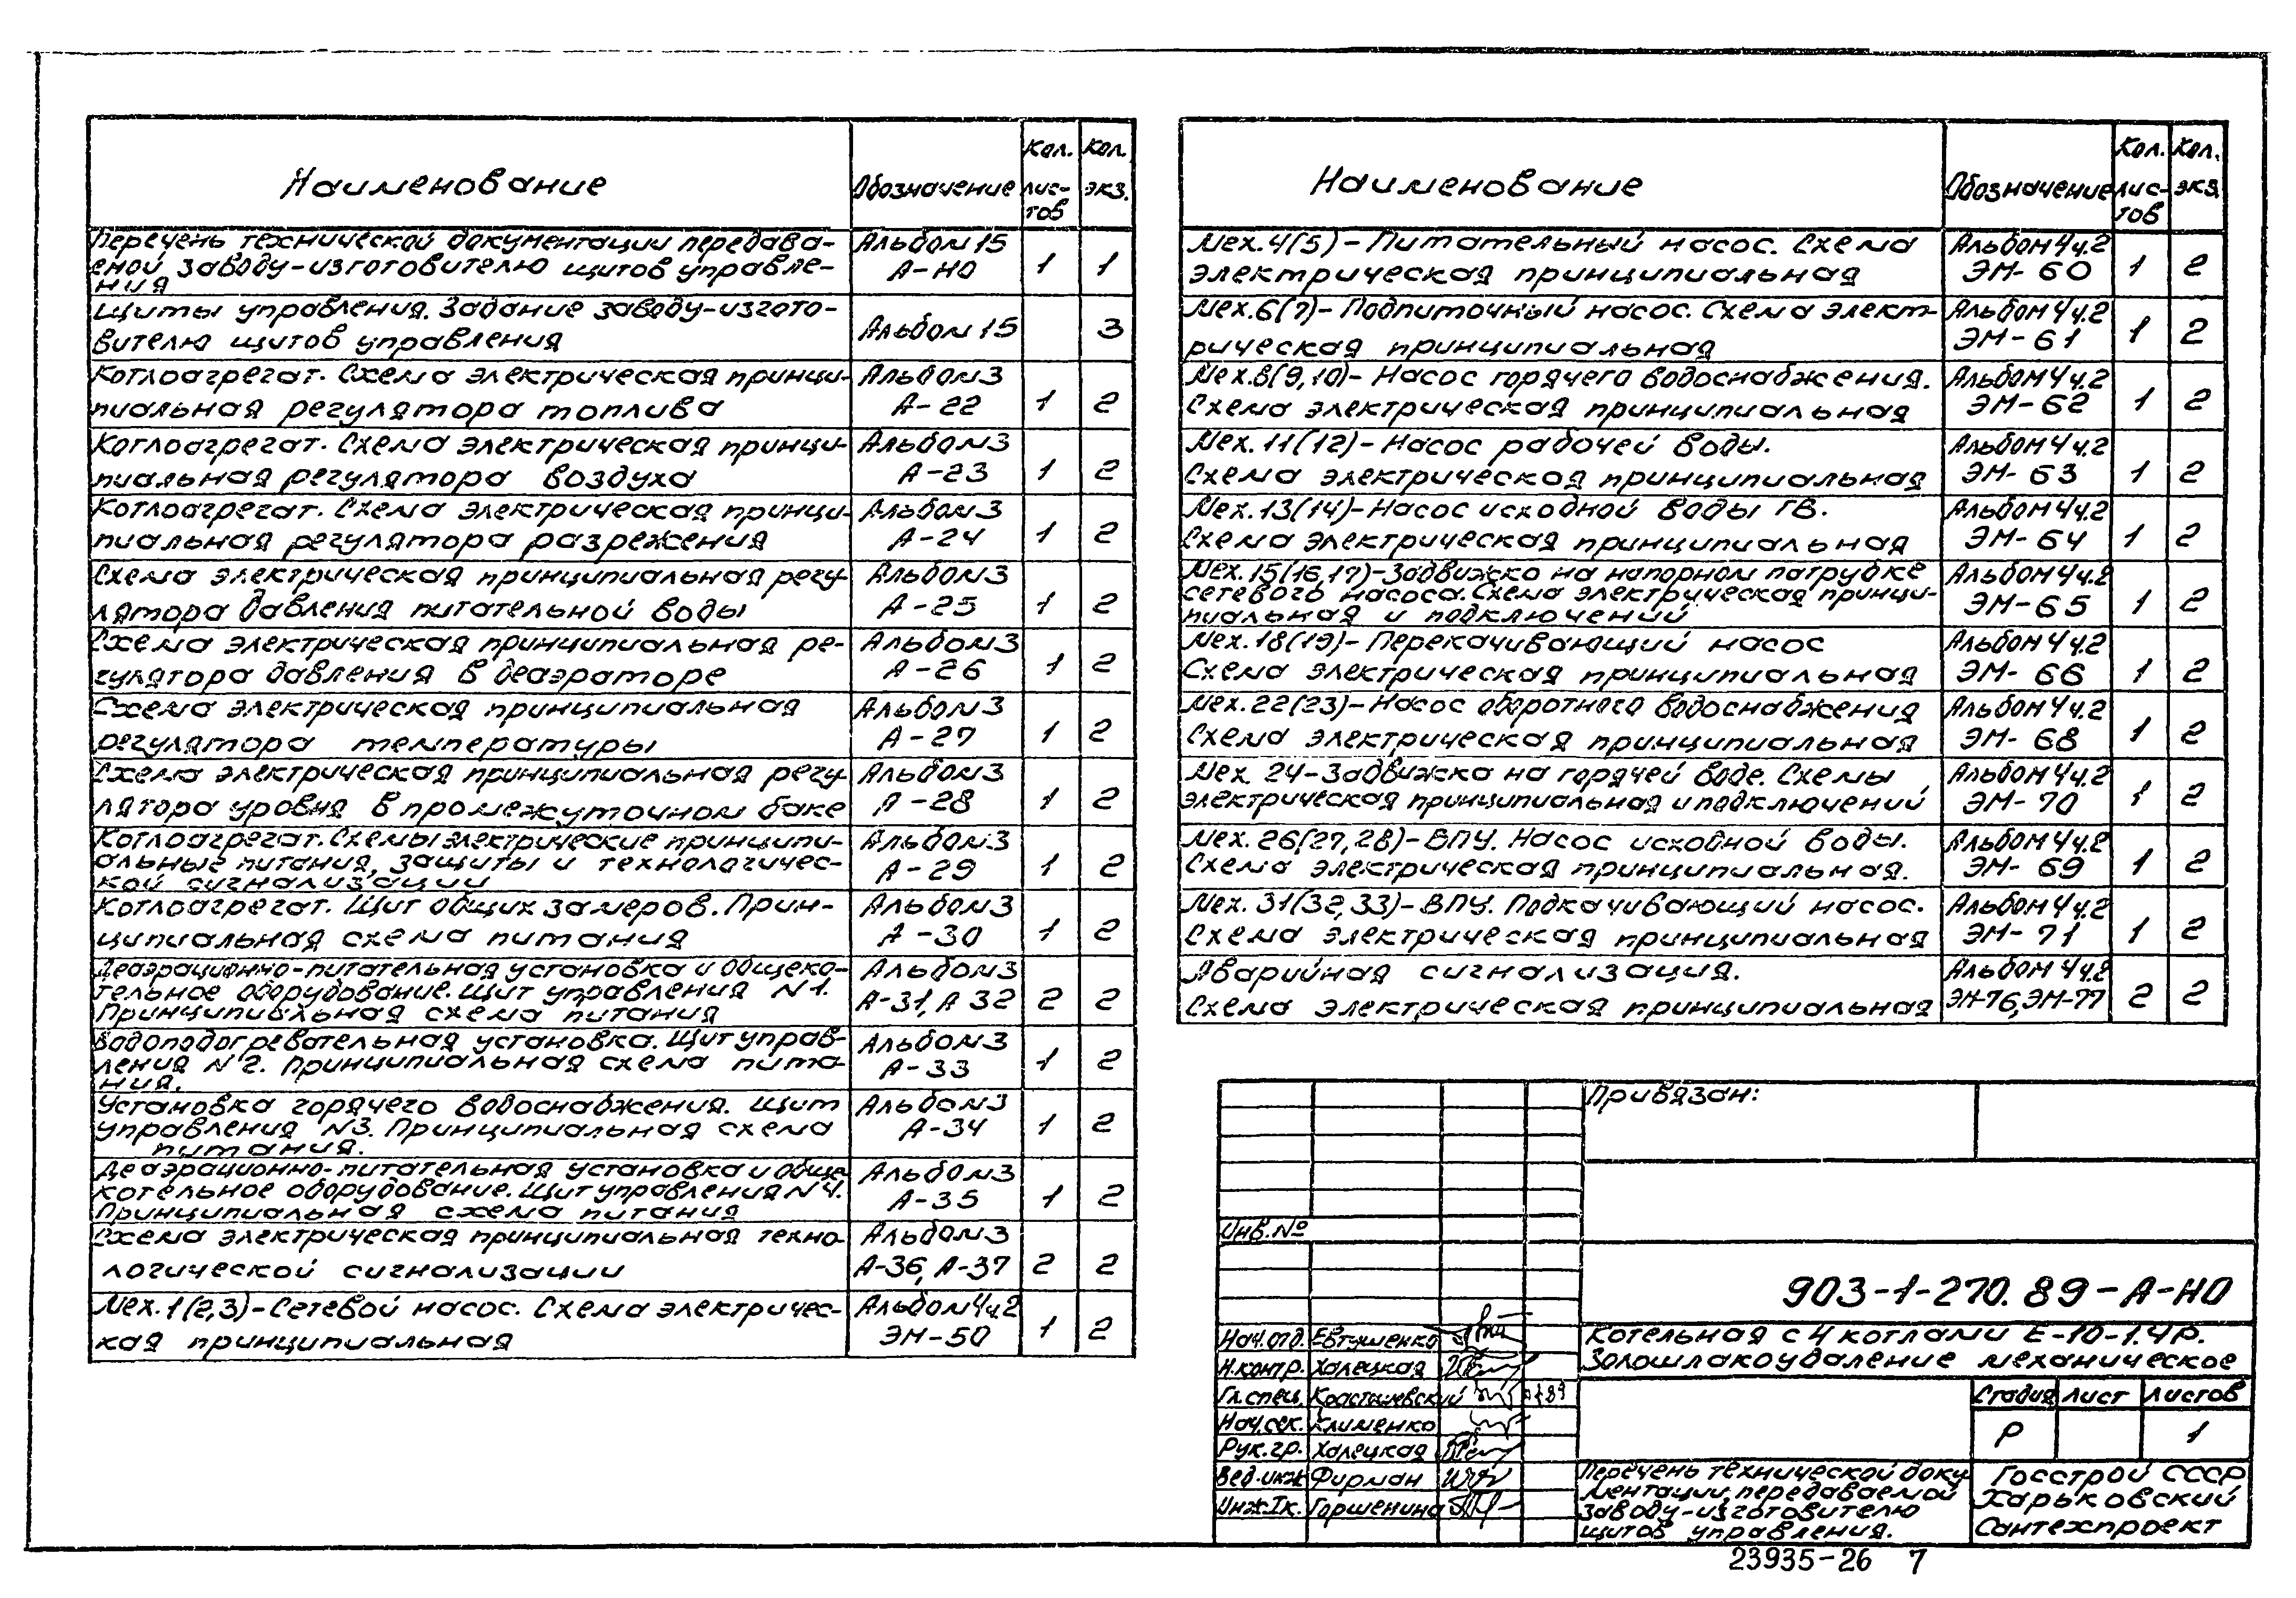 Наименование
Обозначение
Кол. лис-
тов
Кол. экз.
Перечень технической документации передава-
емой заводу-изготовителю щитов управле-
ния
Альбом 15
А-НО
1
1
Щиты управления. Задание заводу-изгото-
вителю щитов управления
Альбом 15
3
Котлоагрегат. Схема электрическая принци-
пиальная регулятора топлива
Альбом 3
А-22
1
2
Котлоагрегат. Схема электрическая принци-
пиальная регулятора воздуха
Альбом 3
А-23
1
2
Котлоагрегат. Схема электрическая принци-
пиальная регулятора разрежения
Альбом 3
А-24
1
2
Схема электрическая принципиальная регу-
лятора давления питательной воды
Альбом 3
А-25
1
2
Схема электрическая принципиальная ре-
гулятора давления в деаэраторе
Альбом 3
А-26
1
2
Схема электрическая принципиальная
регулятора температуры
Альбом 3
А-27
1
2
Схема электрическая принципиальная регу-
лятора уровня в промежуточном баке
Альбом 3
А-28
1
2
Котлоагрегат. Схемы электрические принципи-
альные питания, защиты и технологичес-
кой сигнализации
Альбом 3
А-29
1
2
Котлоагрегат. Щит общих замеров. Прин-
ципиальная схема питания
Альбом 3
А-30
1
2
Деаэрационно-питательная установка и общеко-
тельное оборудование. Щит управления N1.
Принципиальная схема питания
Альбом 3
А-31, А 32
2
2
Водоподогревательная установка. Щит управ-
ления N2. Принципиальная схема пита-
ния.
Альбом 3
А-33
1
2
Установка горячего водоснабжения. Щит
управления N3. Принципиальная схема
питания.
Альбом 3
А-34
1
2
Деаэрационно-питательная установка и обще-
котельное оборудование. Щит управления N4.
Принципиальная схема питания
Альбом 3
А-35
1
2
Схема электрическая принципиальная техно-
логической сигнализации
Альбом 3
А-36, А-37
2
2
Мех. 1(2,3)-Сетевой насос. Схема электричес-
кая принципиальная
Альбом 4ч.2
ЭМ-50
1
2
Наименование
Обозначение
Кол. лис-
тов
Кол. экз.
Мех. 4(5)-Питательный насос. Схема
электрическая принципиальная
Альбом 4ч.2
ЭМ-60
1
2
Мех. 6(7)-Подпиточный насос. Схема элект-
рическая принципиальная
Альбом 4ч.2
ЭМ-61
1
2
Мех. 8(9,10)-Насос горячего водоснабжения.
Схема электрическая принципиальная
Альбом 4ч.2
ЭМ-62
1
2
Мех. 11(12)-Насос рабочей воды.
Схема электрическая принципиальная
Альбом 4ч.2
ЭМ-63
1
2
Мех. 13(14)-Насос исходной воды ГВ.
Схема электрическая принципиальная
Альбом 4ч.2
ЭМ-64
1
2
Мех. 15(16,17)-Задвижка на напорном патрубке
сетевого насоса. Схема электрическая принци-
пиальная и подключений
Альбом 4ч.2
ЭМ-65
1
2
Мех. 18(19)-Перекачивающий насос
Схема электрическая принципиальная
Альбом 4ч.2
ЭМ-66
1
2
Мех. 22(23)-Насос оборотного водоснабжения
Схема электрическая принципиальная
Альбом 4ч.2
ЭМ-68
1
2
Мех. 24-Задвижка на горячей воде. Схемы
электрическая принципиальная и подключений
Альбом 4ч.2
ЭМ-70
1
2
Мех. 26(27,28)-ВПУ. Насос исходной воды.
Схема электрическая принципиальная.
Альбом 4ч.2
ЭМ-69
1
2
Мех. 31(32,33)-ВПУ. Подкачивающий насос.
Схема электрическая принципиальная
Альбом 4ч.2
ЭМ-71
1
2
Аварийная сигнализация.
Схема электрическая принципиальная
Альбом 4ч.2
ЭМ-76, ЭМ-77
2
2
Привязан:
Инв. №
903-1-270.89-А-НО
Нач. отд. Евтушенко
Н. контр. Халецкая
Гл. спец.
Нач. сек. Клименко
Рук. гр. Халецкая
Вед. инж Фирман
Инж. Iк. Горшенина
Котельная с 4 котлами Е-10-1.4Р.
Золошлакоудаление механическое
Стадия Лист Листов
Р 1
Перечень технической доку-
ментации, передаваемой
заводу-изготовителю
щитов управления.
Госстрой СССР
Харьковский
Сантехпроект
23935-26 7